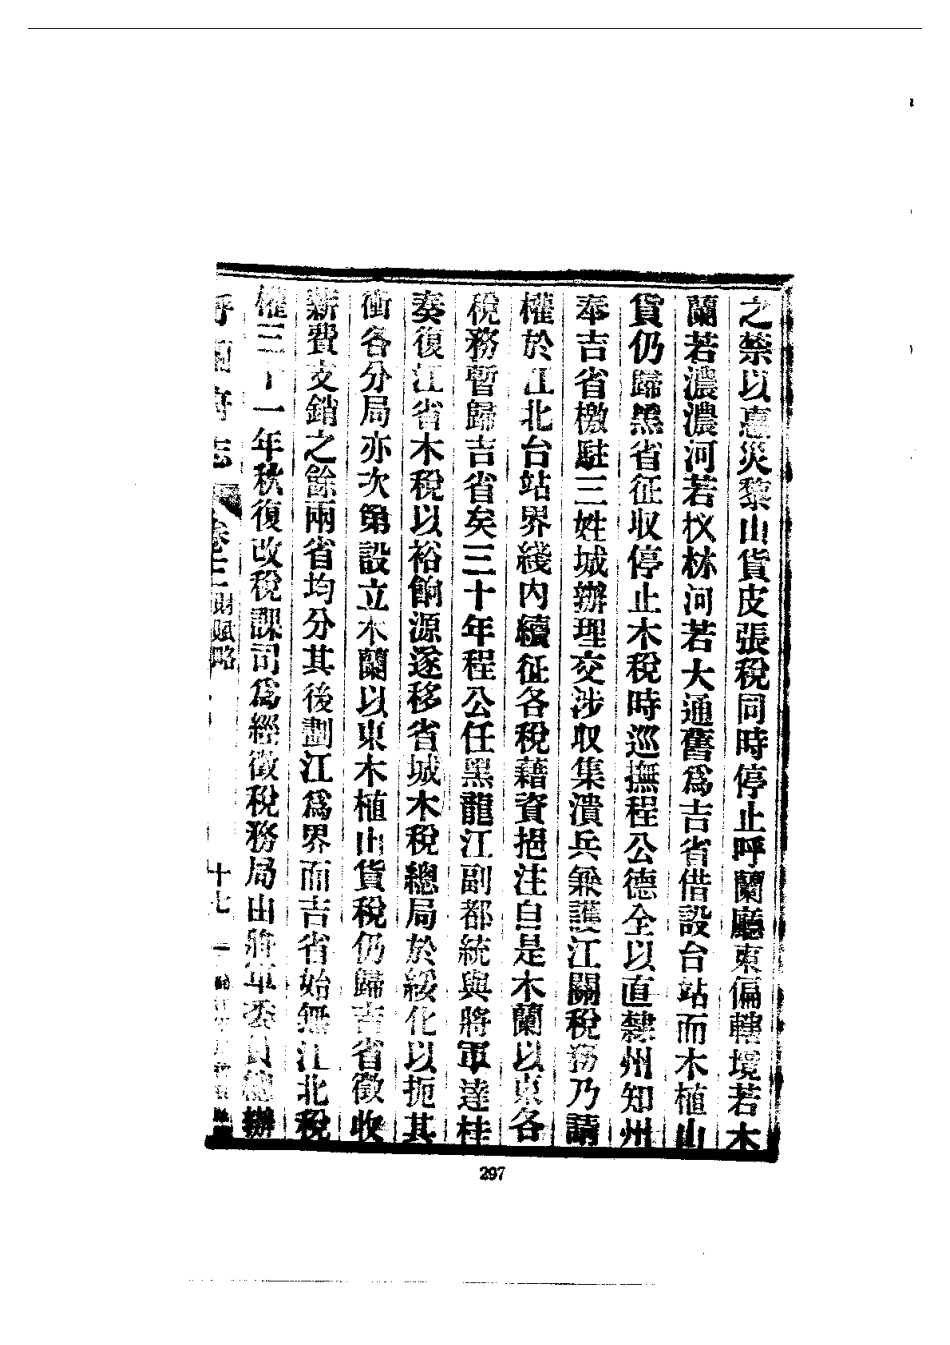 之禁以惠災黎山貨皮張稅同時停止呼蘭廳東偏轄境若木
蘭若濃濃河若杈林河若大通舊爲吉省借設台站而木植山
貨仍歸黑省征收停止木稅時巡撫程公德全以直隸州知州
奉吉省檄駐三姓城辦理交涉收集潰兵兼護江關稅務乃請
權於江北台站界綫內續征各稅藉資挹注自是木蘭以東各
稅務暫歸吉省矣三十年程公任黑龍江副都統與將軍達桂
奏復江省木稅以裕餉源遂移省城木稅總局於綏化以扼其
衝各分局亦次第設立木蘭以東木植山貨稅仍歸吉省徵收
薪費支銷之餘兩省均分其後劃江爲界而吉省始無江北稅
權三十一年秋復改稅課司爲經徵稅務局由將軍委員總辦
呼蘭府志 卷三 財賦略 十七
297